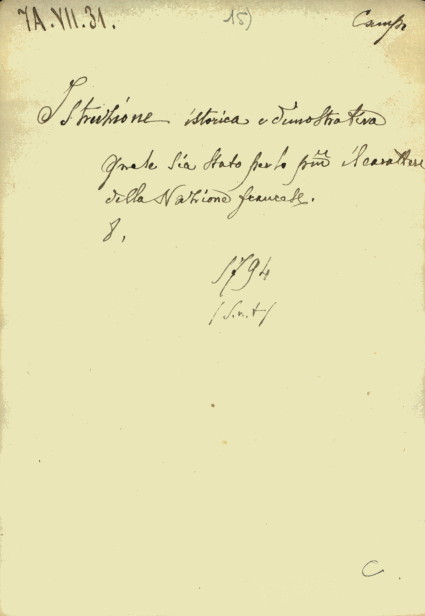 7A.VII.31. 15) Camps
Istruzione istorica e dimostrativa
quale sia stato per lo più il carattere
della Nazione francese.
8,
1794
/S.n.t/
C